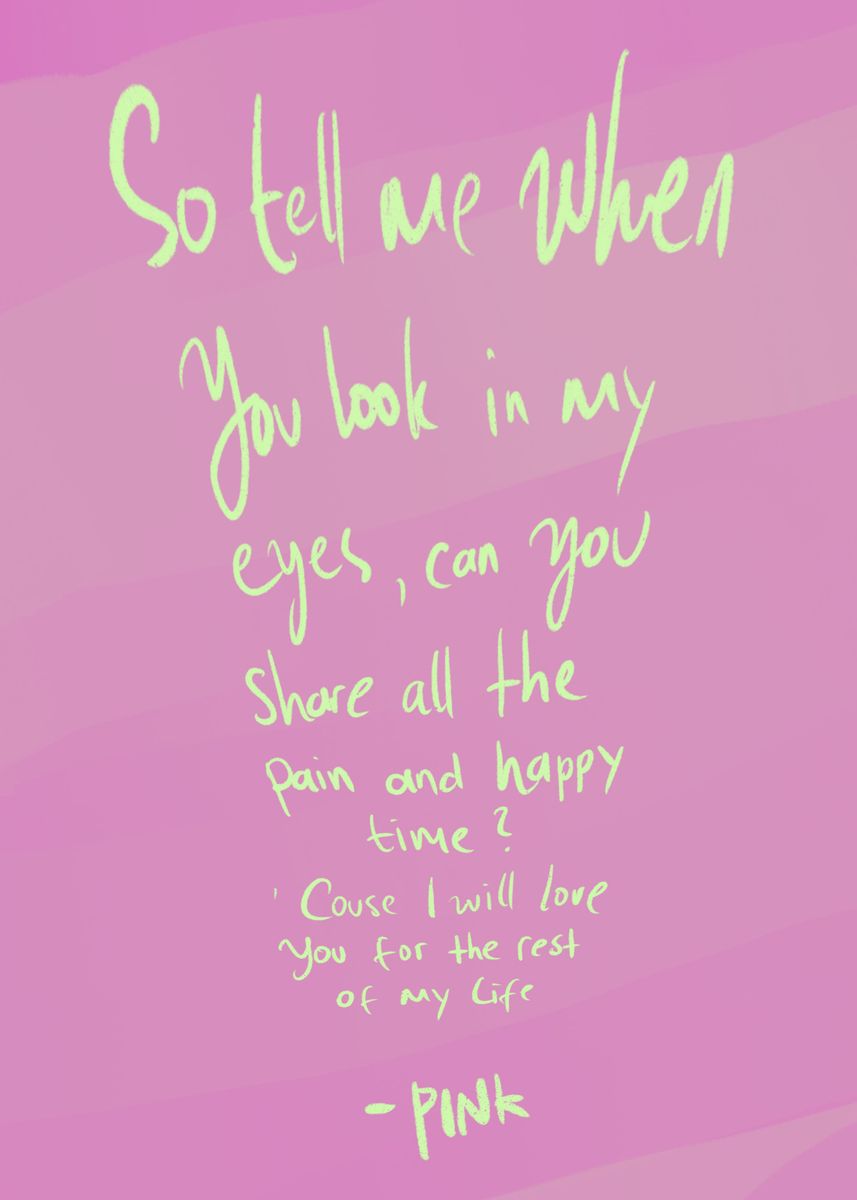 So tell me when
You look in my
eyes, can you
share all the
pain and happy
time?
'Couse I will love
you for the rest
of my life
- PINK